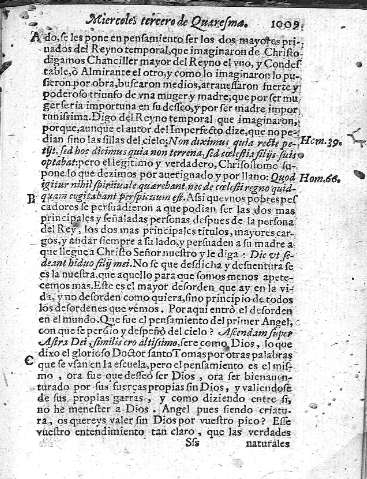 Miercoles tercero de Quaresma. 1009
Ado, se les pone en pensamiento ser los dos mayores pri-
uados del Reyno temporal, que imaginaron de Christo
digamos Chanciller mayor del Reyno el vno, y Condes
table, ò Almirante el otro, y como lo imaginaron lo pu-
sieron por obra, buscaron medios, atrauessaron fuerte y
poderoso triunfo de vna muger y madre, que por ser mu
ger seria importuna en su desseo, y por ser madre impor-
tunissima. Digo del Reyno temporal que imaginaron,
porque, aunque el autor del Imperfecto dize, que no pe-
dian sino las sillas del cielo; Non diximus quia recte pe- Hom. 39.
tijt, sed hoc dicimus quia non terrena, sed cœlestia filijs suis
optabat: pero el legitimo y verdadero, Chrisostomo su-
pone lo que dezimos por aueriguado y por llano: Quod Hom. 66.
igitur nihil spirituale quærebant, nec de cœlesti regno quid-
quam cogitabant perspicuum est. Assi que vnos pobres pes
B cadores se persuadieron a que podrian ser las dos mas
principales y señaladas personas despues de la persona
del Rey, los dos mas principales titulos, mayores car-
gos, y andar siempre a su lado, y persuaden a su madre a
que llegue a Christo Señor nuestro y le diga: Dic vt se-
deant hi duo filij mei. No sè que desdicha y desuentura se
es la nuestra, que aquello para que somos menos apete-
cemos mas. Este es el mayor desorden que ay en la vi-
da, y no desorden como quiera, sino principio de todos
los desordenes que vemos. Por aqui entrò el desorden
en el mundo. Que fue el pensamiento del primer Angel,
con que se perdio y despeñò del cielo? Ascendam super
Astra Dei, similis ero altissimo, serè como Dios, lo que
dixo el glorioso Doctor santo Tomas por otras palabras
C que se vsan en la escuela, pero el pensamiento es el mis-
mo, ora fue que desseò ser Dios, ora ser bienauen-
turado por sus fuerças propias sin Dios, y valiendose
de sus propias garras, y como diziendo entre si,
no he menester a Dios. Angel pues siendo criatu-
ra, os quereys valer sin Dios por vuestro pico? Esse
vuestro entendimiento tan claro, que las verdades
Sss naturales